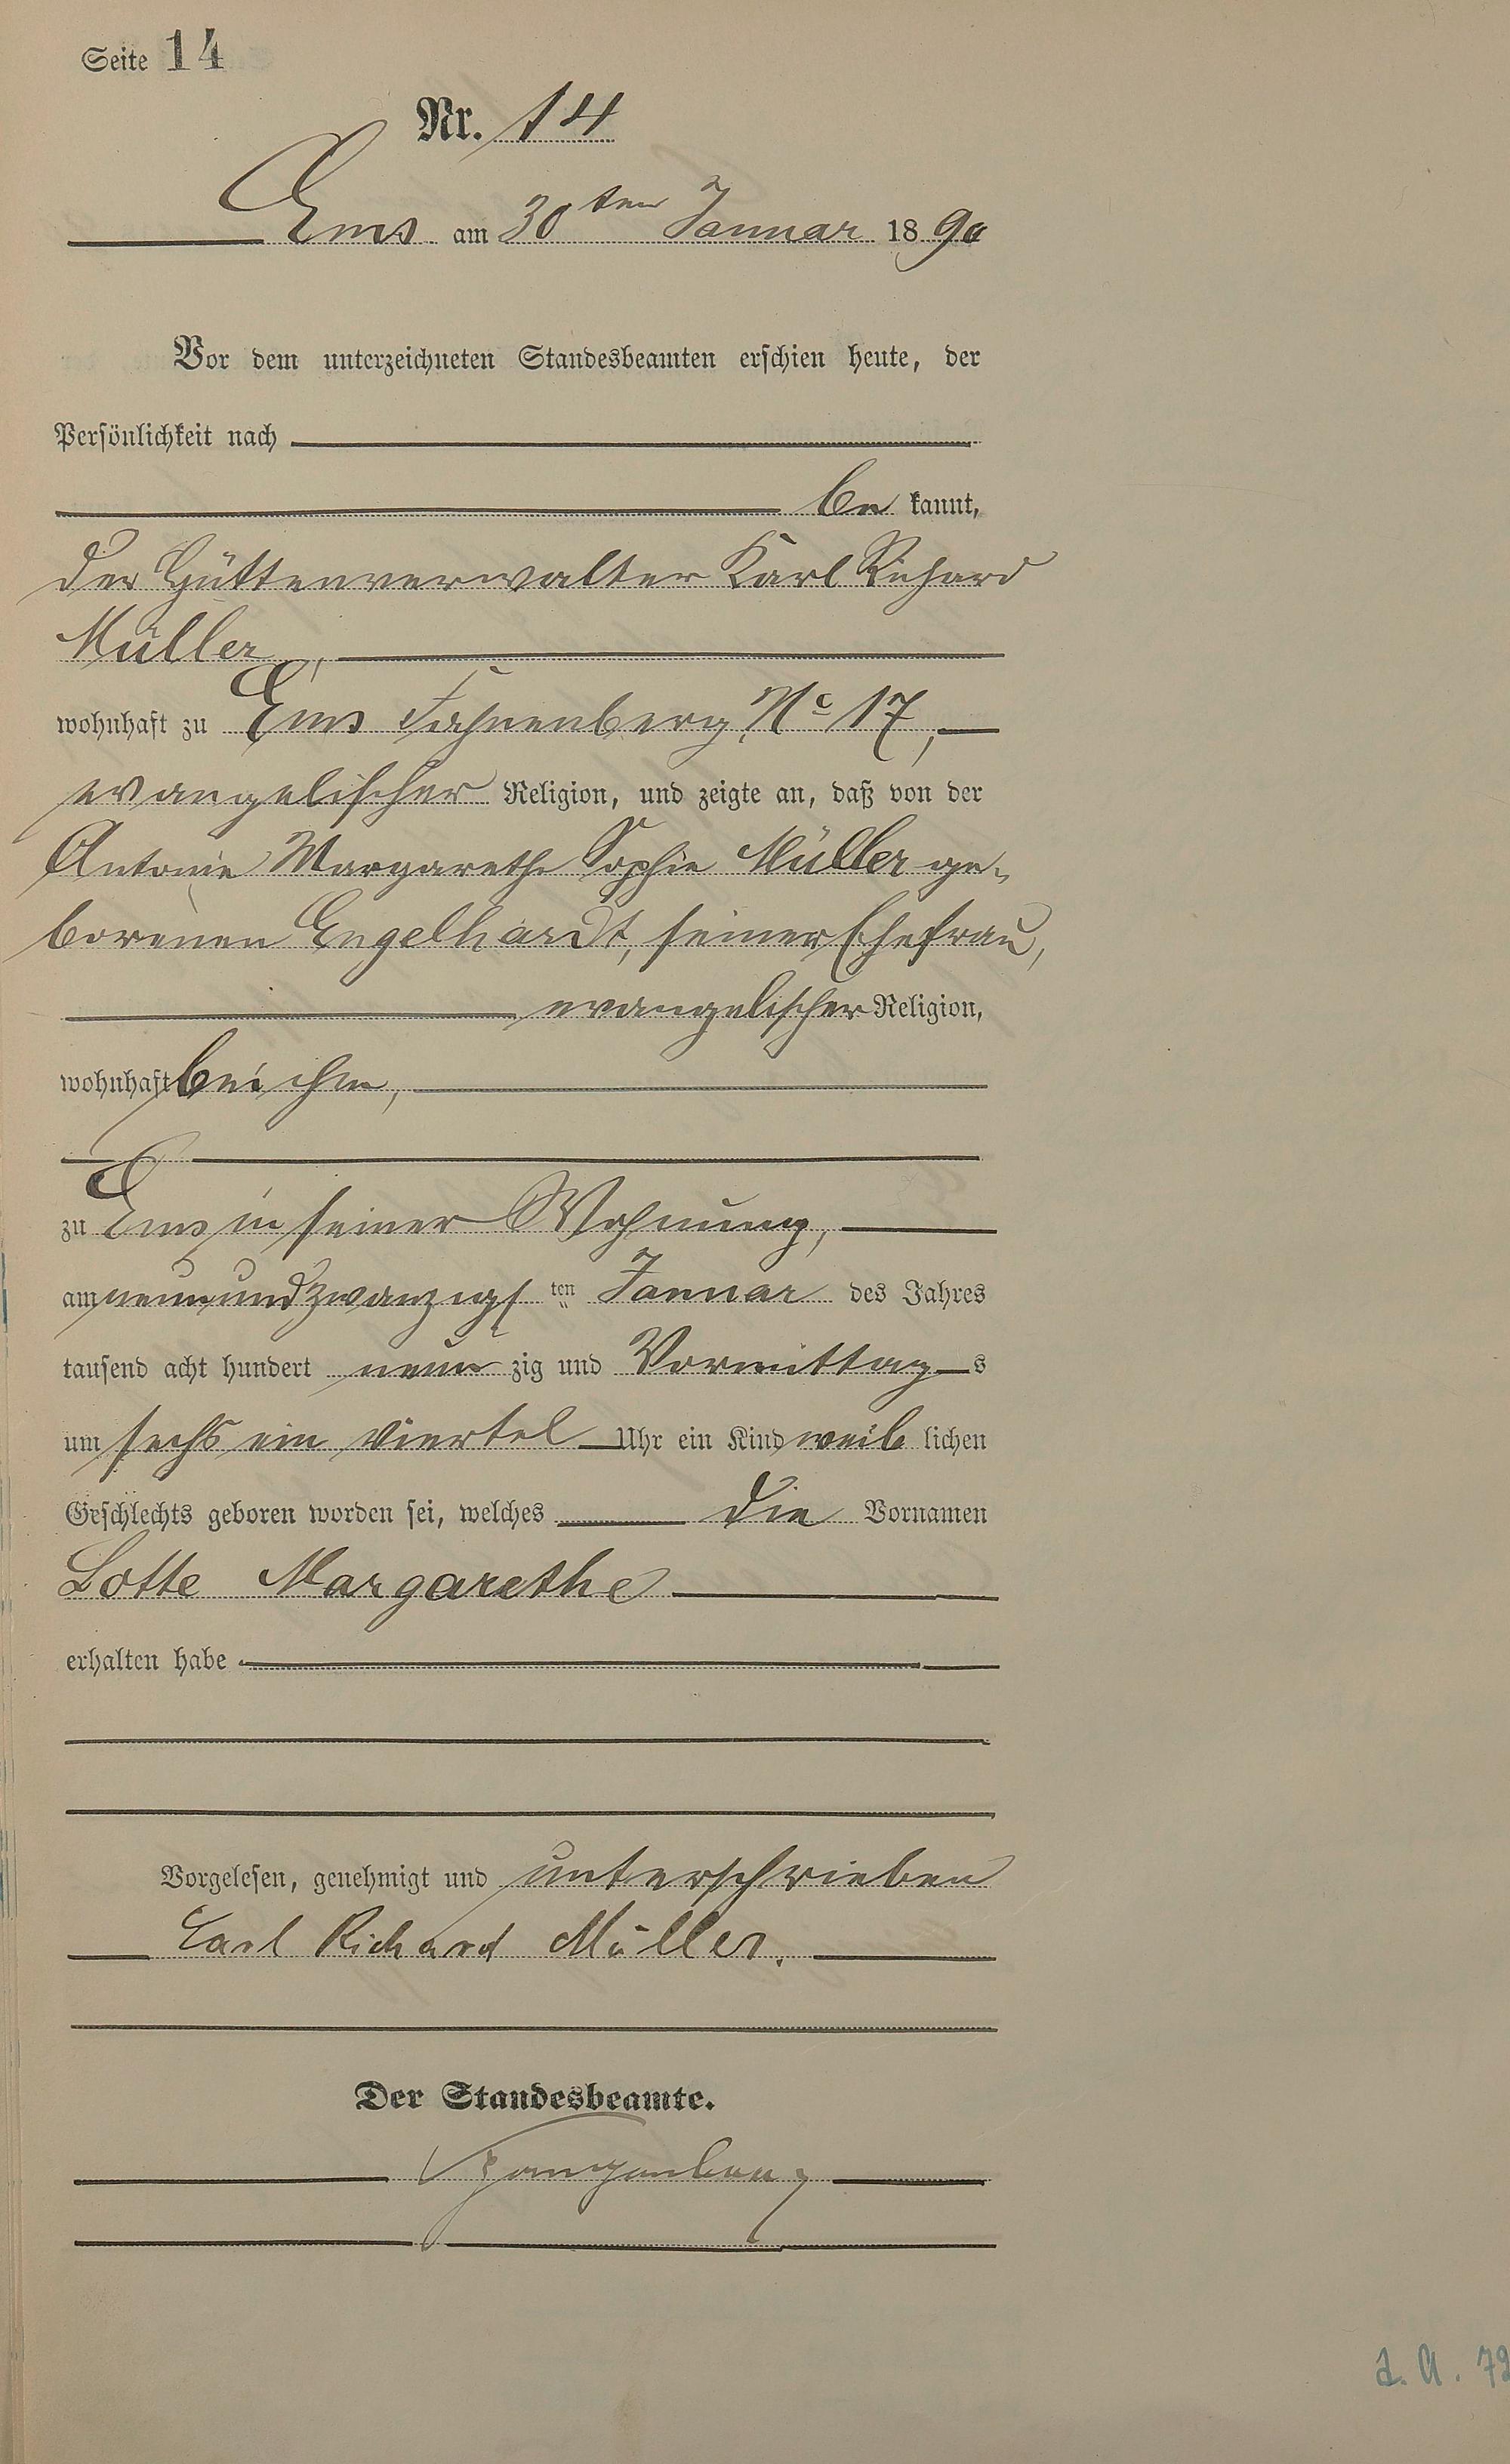 Seite 14
Nr. 14
Ems am 30ten Januar 1890
Vor dem unterzeichneten Standesbeamten erschien heute, der
Persönlichkeit nach
be kannt,
der Hüttenverwalter Karl Richard
Müller,
wohnhaft zu Ems Fahnenberg No 17,
evangelischer Religion, und zeigte an, daß von der
Antonie Margarethe Sophie Müller ge-
borenen Engelhardt, seiner Ehefrau,
evangelischer Religion,
wohnhaft bei ihm,
zu Ems in seiner Wohnung,
am neunundzwanzigsten Januar des Jahres
tausend acht hundert neun zig und Vormittags
um sechs ein viertel Uhr ein Kind weib lichen
Geschlechts geboren worden sei, welches die Vornamen
Lotte Margarethe
erhalten habe
Vorgelesen, genehmigt und unterschrieben
Carl Richard Müller.
Der Standesbeamte.